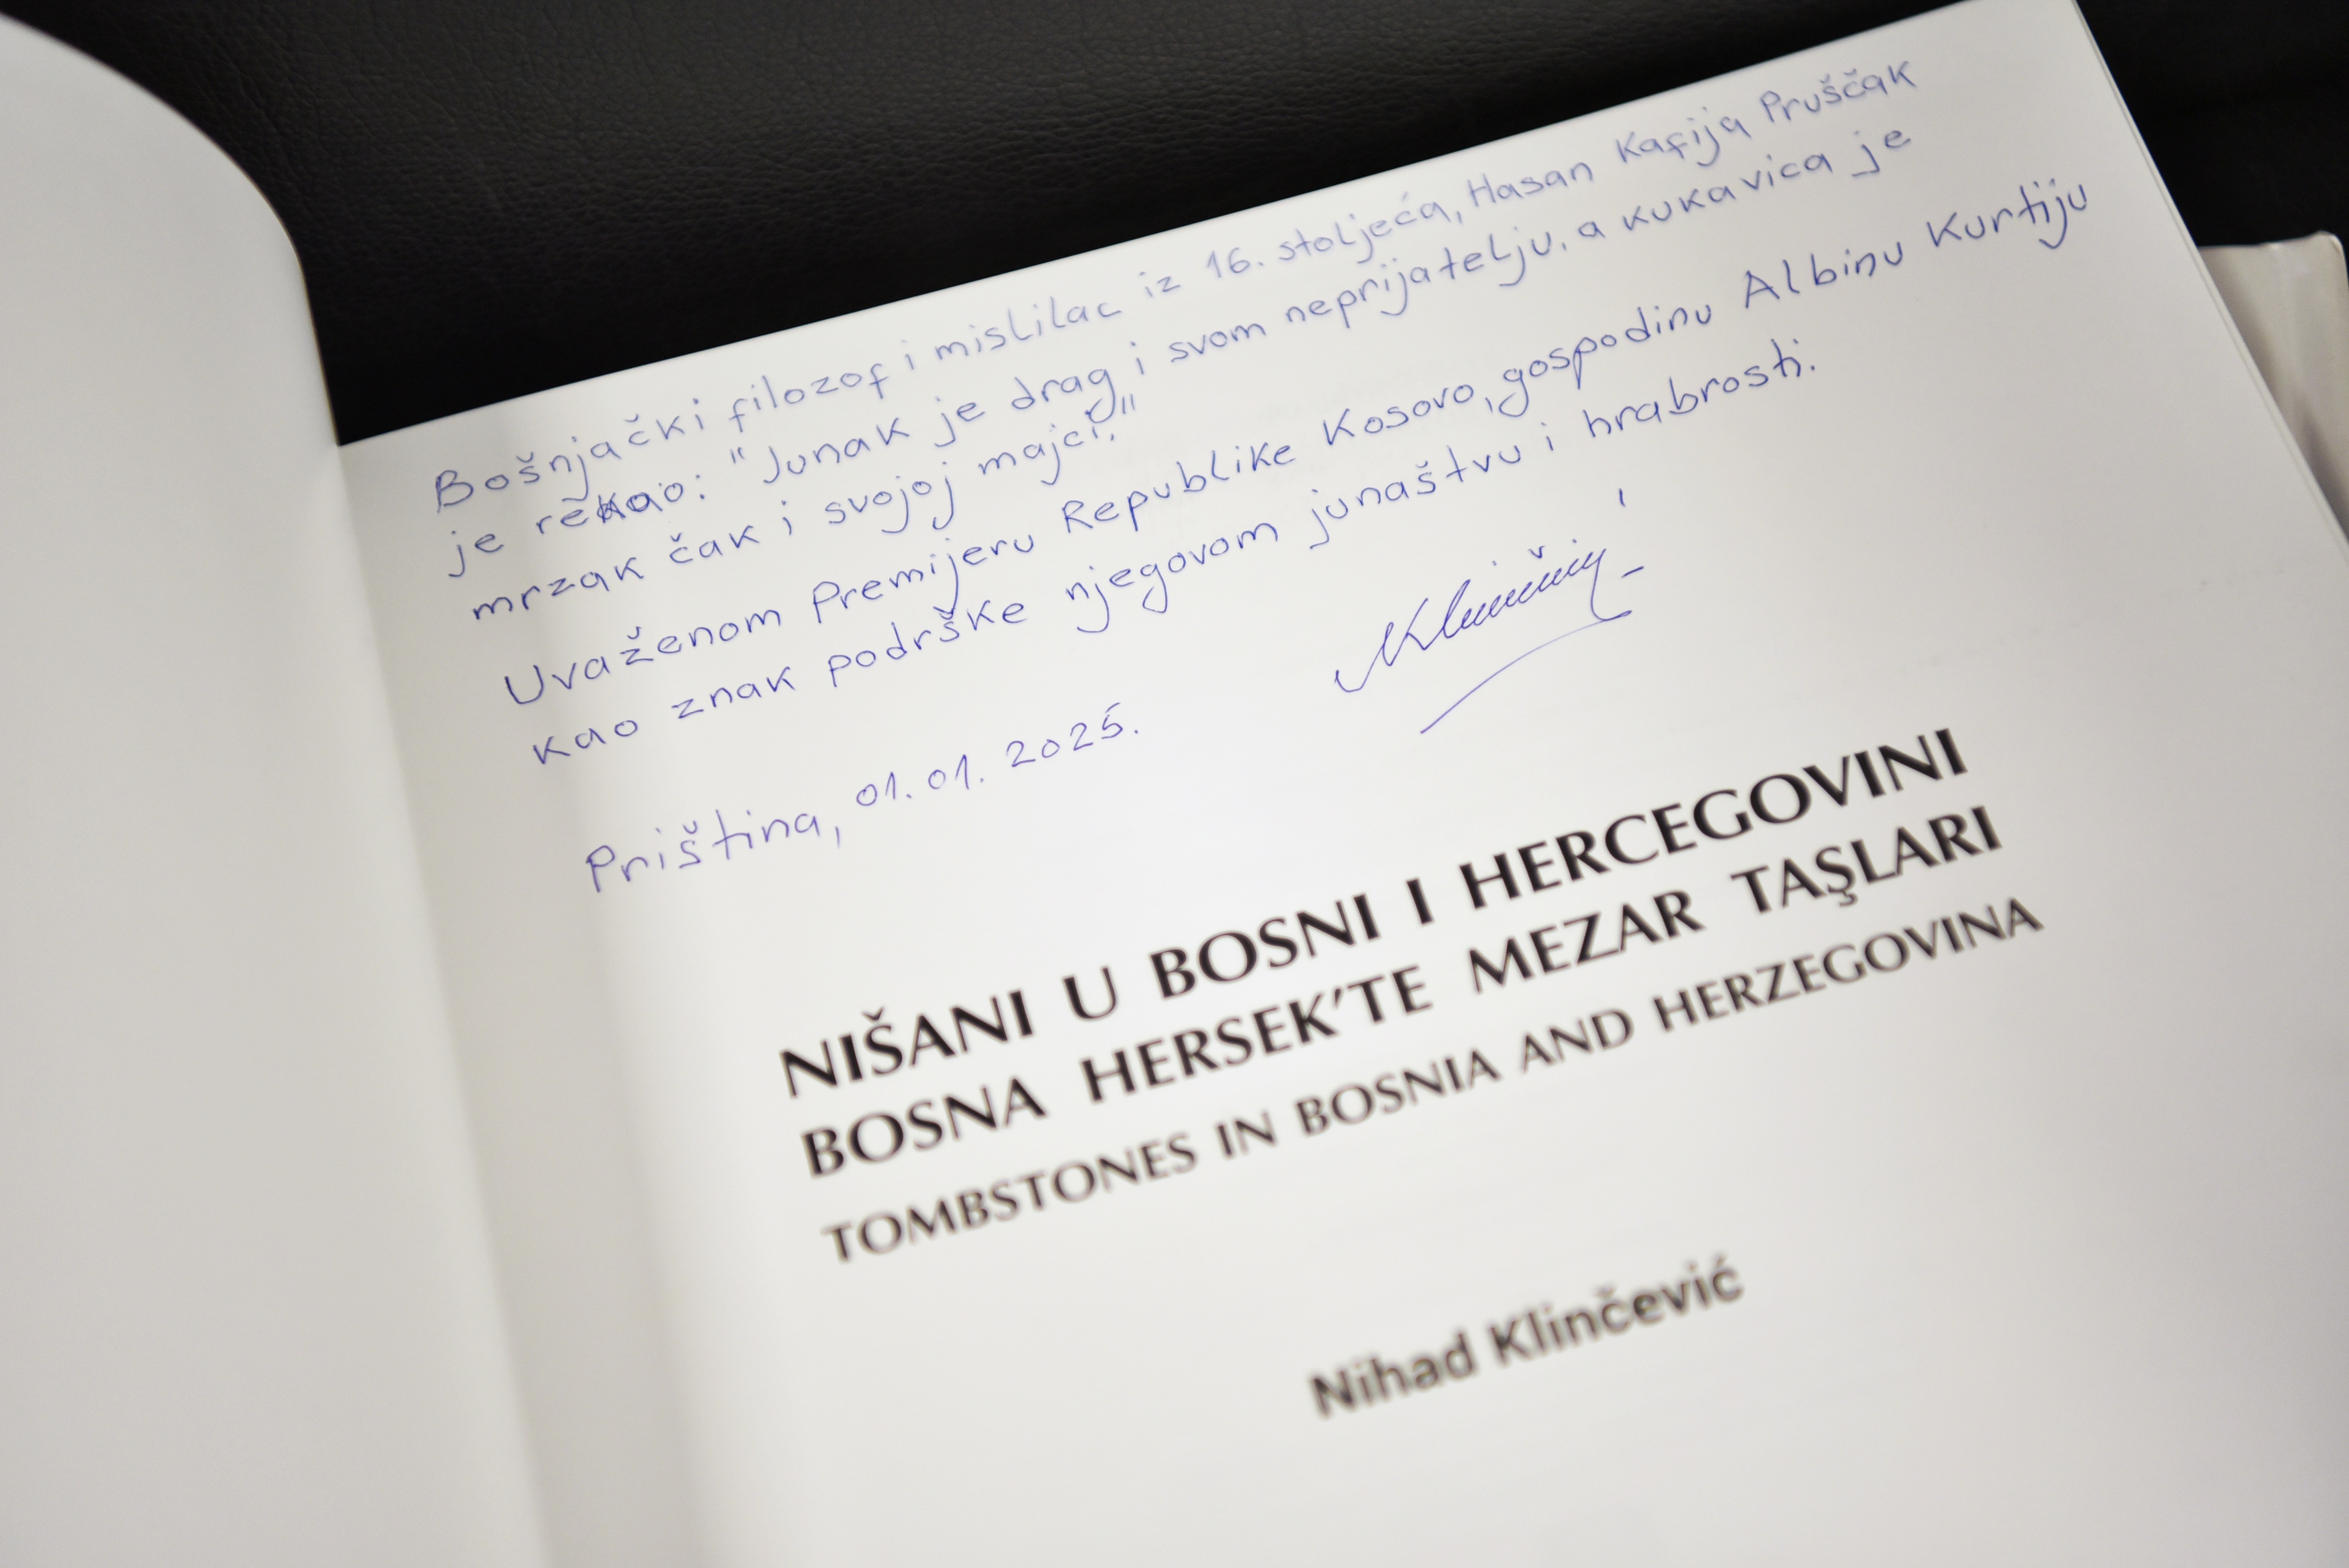 Bošnjački filozof i mislilac iz 16. stoljeća, Hasan Kafija Pruščak
je rekao: "Junak je drag i svom neprijatelju, a kukavica je
mrzak čak i svojoj majci."
Uvaženom Premijeru Republike Kosovo, gospodinu Albinu Kurtiju
kao znak podrške njegovom junaštvu i hrabrosti.
Priština, 01.01.2025.
NIŠANI U BOSNI I HERCEGOVINI
BOSNA HERSEK'TE MEZAR TAŞLARI
TOMBSTONES IN BOSNIA AND HERZEGOVINA
Nihad Klinčević